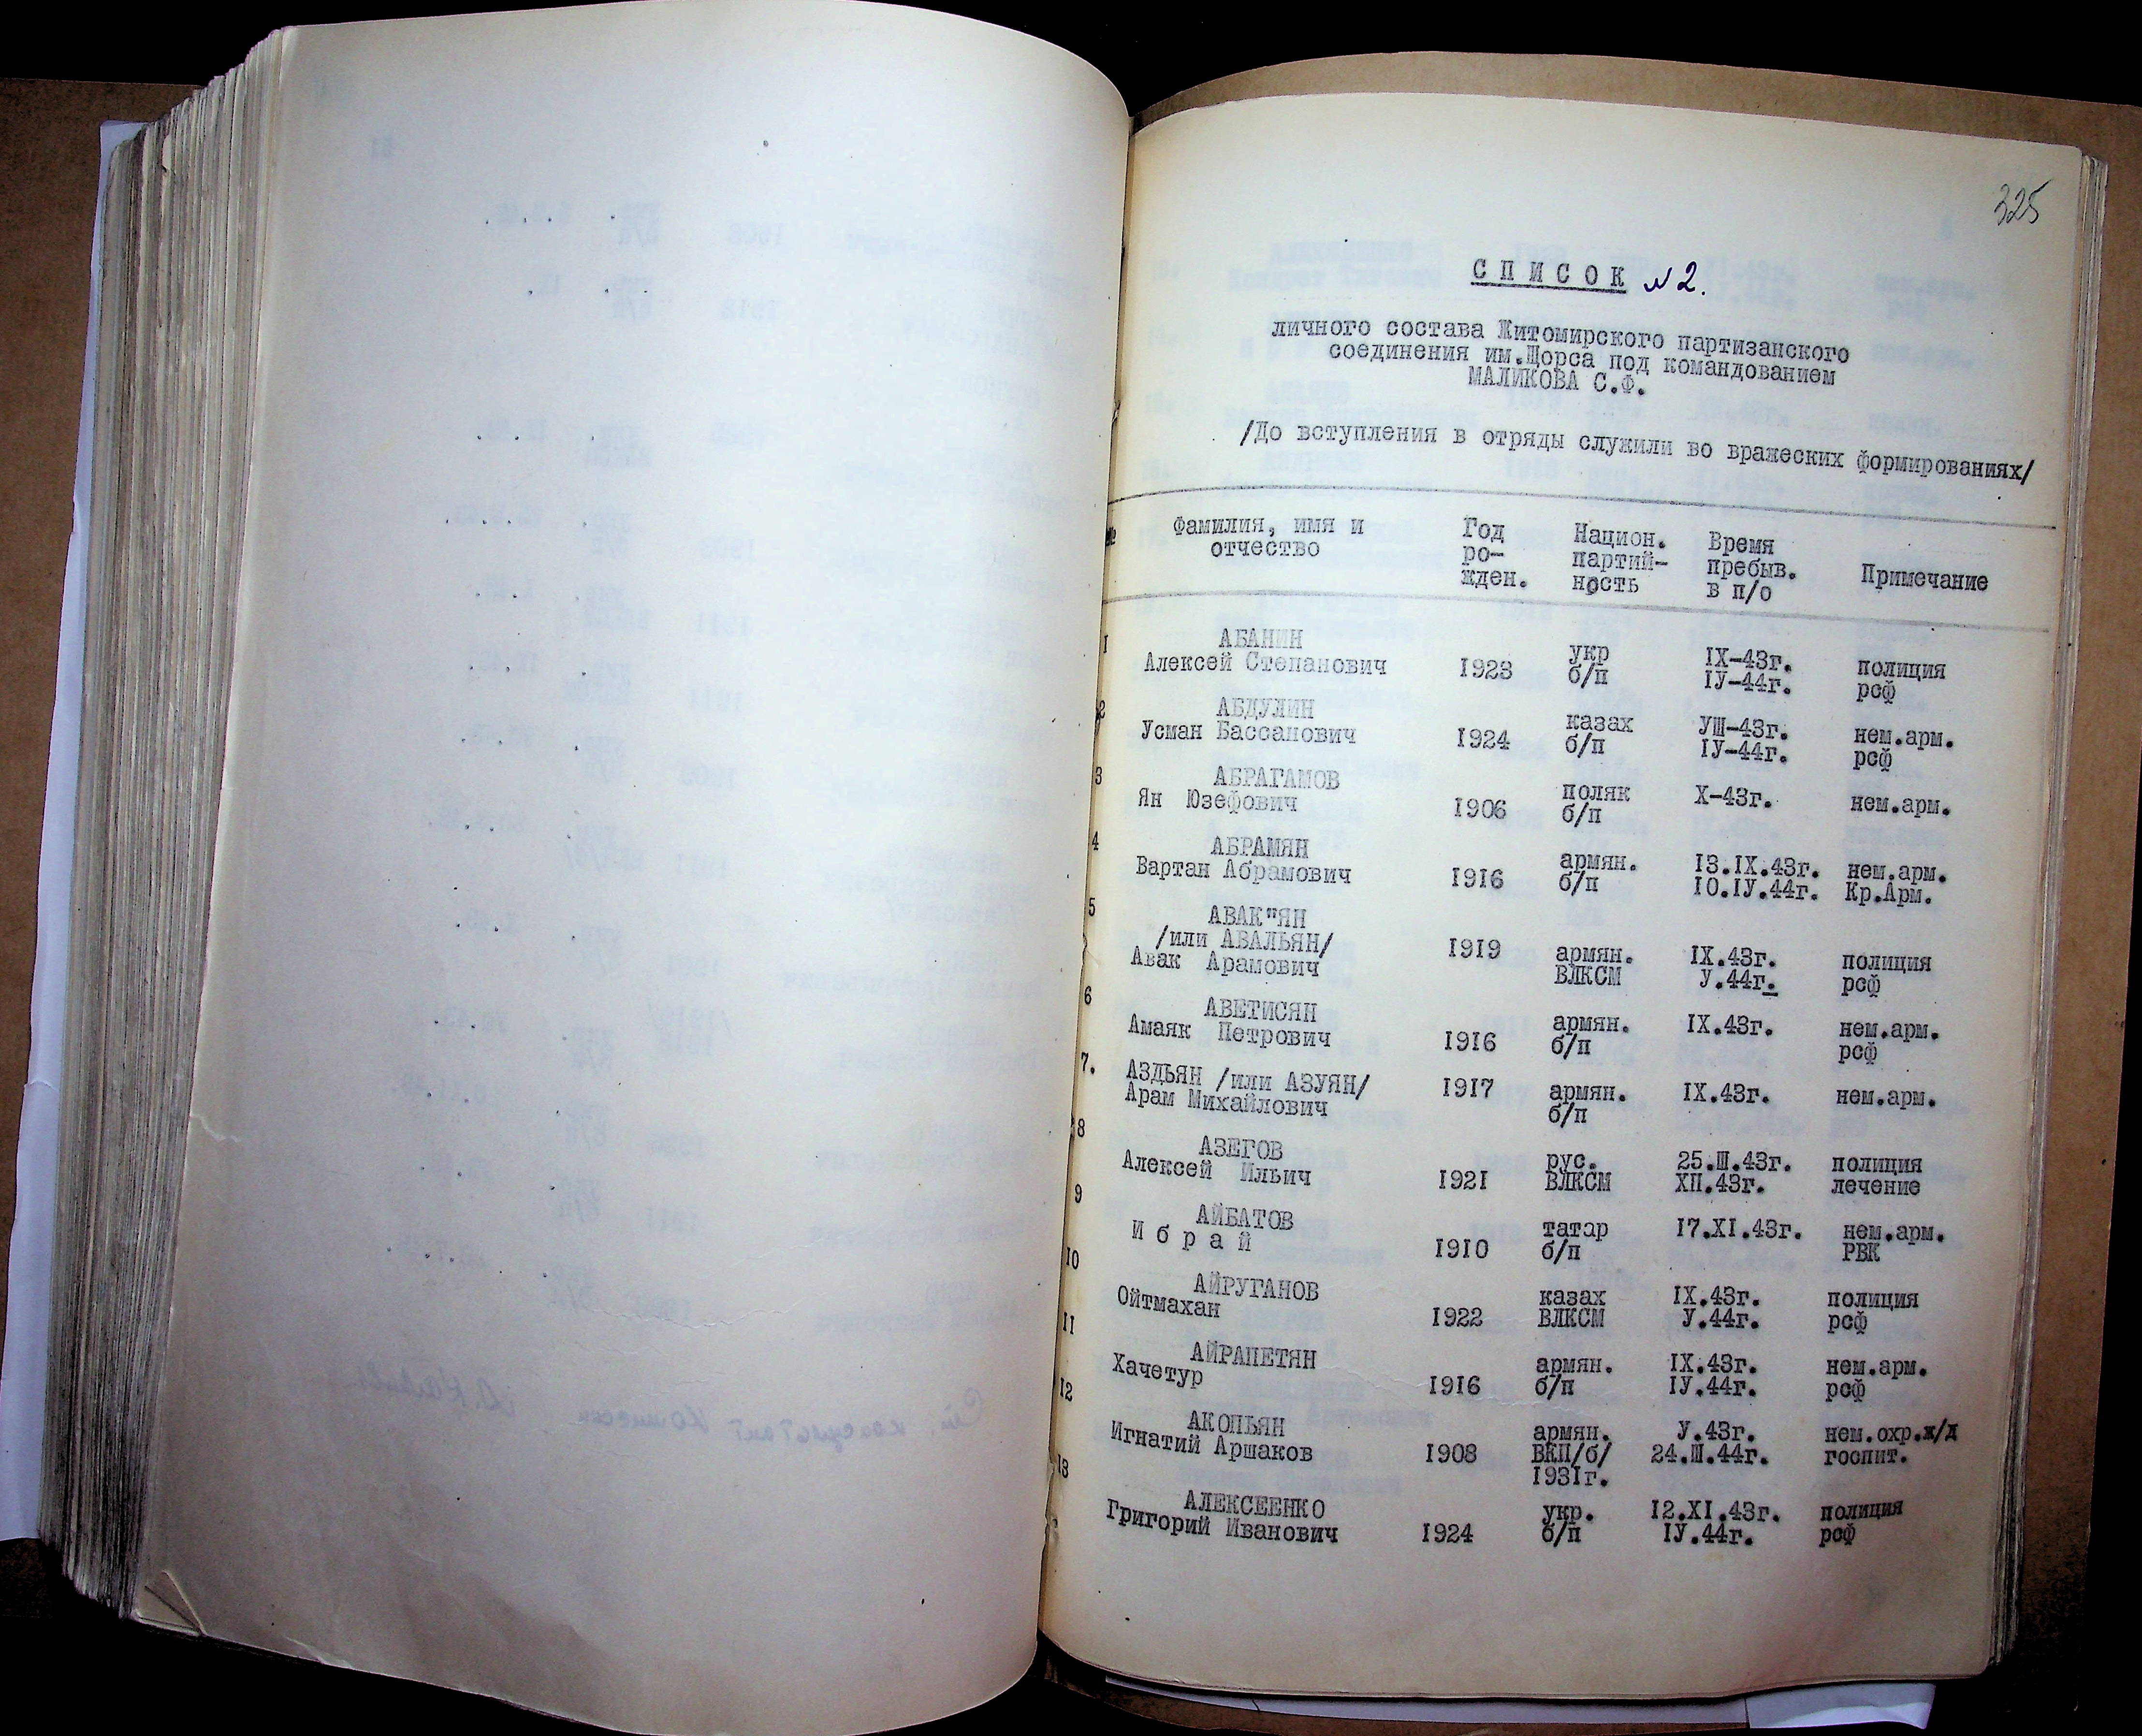 325
СПИСОК №2.
личного состава Житомирского партизанского
соединения им.Щорса под командованием
МАЛИКОВА С.Ф.
/До вступления в отряды служили во вражеских формированиях/
№ Фамилия, имя и отчество Год ро-жден. Национ. партий-ность Время пребыв. в п/о Примечание
1 АБАНИН укр IX-43г. полиция
Алексей Степанович 1923 б/п IУ-44г. рсф
2 АБДУЛИН казах УШ-43г. нем.арм.
Усман Бассанович 1924 б/п IУ-44г. рсф
3 АБРАГАМОВ поляк X-43г. нем.арм.
Ян Юзефович 1906 б/п
4 АБРАМЯН армян. 13.IX.43г. нем.арм.
Вартан Абрамович 1916 б/п 10.IУ.44г. Кр.Арм.
5 АВАК"ЯН
/или АВАЛЬЯН/ 1919 армян. IX.43г. полиция
Авак Арамович ВЛКСМ У.44г. рсф
6 АВЕТИСЯН армян. IX.43г. нем.арм.
Амаяк Петрович 1916 б/п рсф
7. АЗДЬЯН /или АЗУЯН/ 1917 армян. IX.43г. нем.арм.
Арам Михайлович б/п
8 АЗЕГОВ рус. 25.Ш.43г. полиция
Алексей Ильич 1921 ВЛКСМ ХП.43г. лечение
9 АЙБАТОВ татар 17.XI.43г. нем.арм.
Ибрай 1910 б/п РВК
10 АЙРУГАНОВ казах IX.43г. полиция
Ойтмахан 1922 ВЛКСМ У.44г. рсф
11 АЙРАПЕТЯН армян. IX.43г. нем.арм.
Хачетур 1916 б/п IУ.44г. рсф
12 АКОПЬЯН армян. У.43г. нем.охр.ж/д
Игнатий Аршаков 1908 ВКП/б/ 24.Ш.44г. госпит.
1931г.
13 АЛЕКСЕЕНКО укр. 12.XI.43г. полиция
Григорий Иванович 1924 б/п IУ.44г. рсф